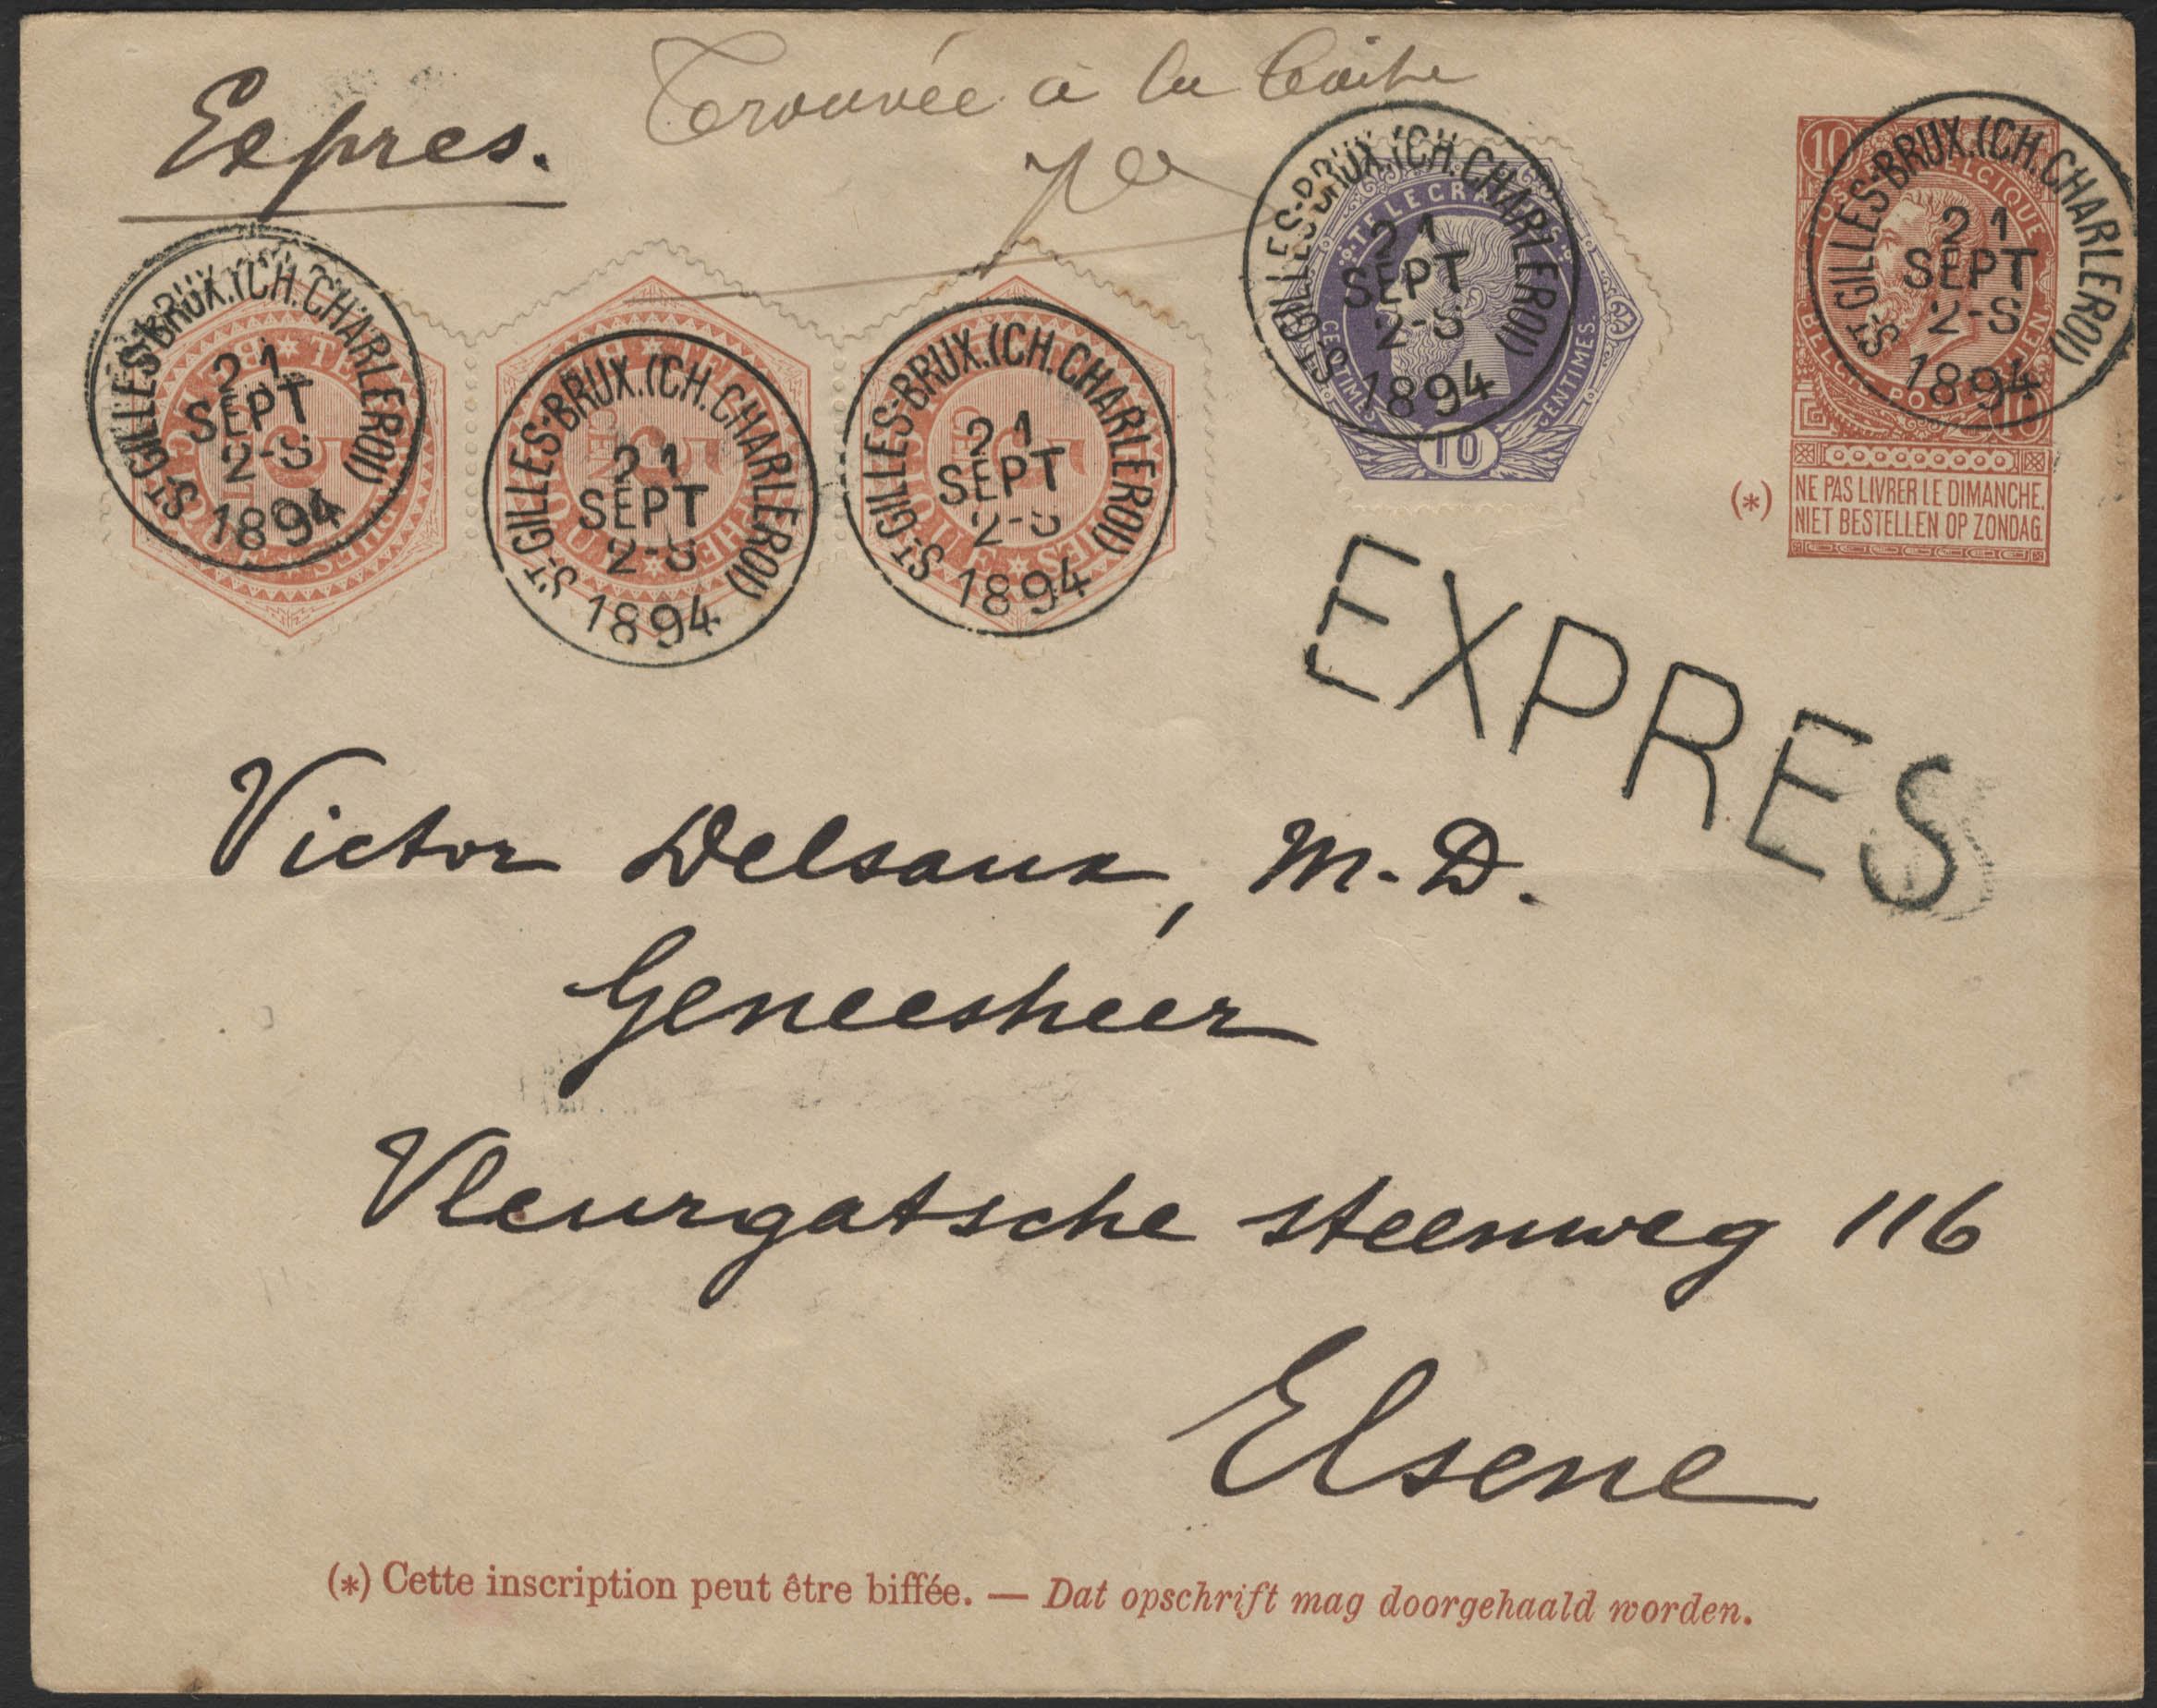 Expres.
Trouvée à la boite
ST GILLES-BRUX.(CH.CHARLEROI)
21
SEPT
2-S
1894
5
ST GILLES-BRUX.(CH.CHARLEROI)
21
SEPT
2-S
1894
5
ST GILLES-BRUX.(CH.CHARLEROI)
21
SEPT
2-S
1894
5
TELEGRAPHES
CENTIMES
CENTIMES.
10
ST GILLES-BRUX.(CH.CHARLEROI)
21
SEPT
2-S
1894
10
10
ST GILLES-BRUX.(CH.CHARLEROI)
21
SEPT
2-S
1894
(*) NE PAS LIVRER LE DIMANCHE.
NIET BESTELLEN OP ZONDAG.
EXPRES
Victor Delsaux, M.D.
Geneesheer
Vleurgatsche steenweg 116
Elsene
(*) Cette inscription peut être biffée. — Dat opschrift mag doorgehaald worden.